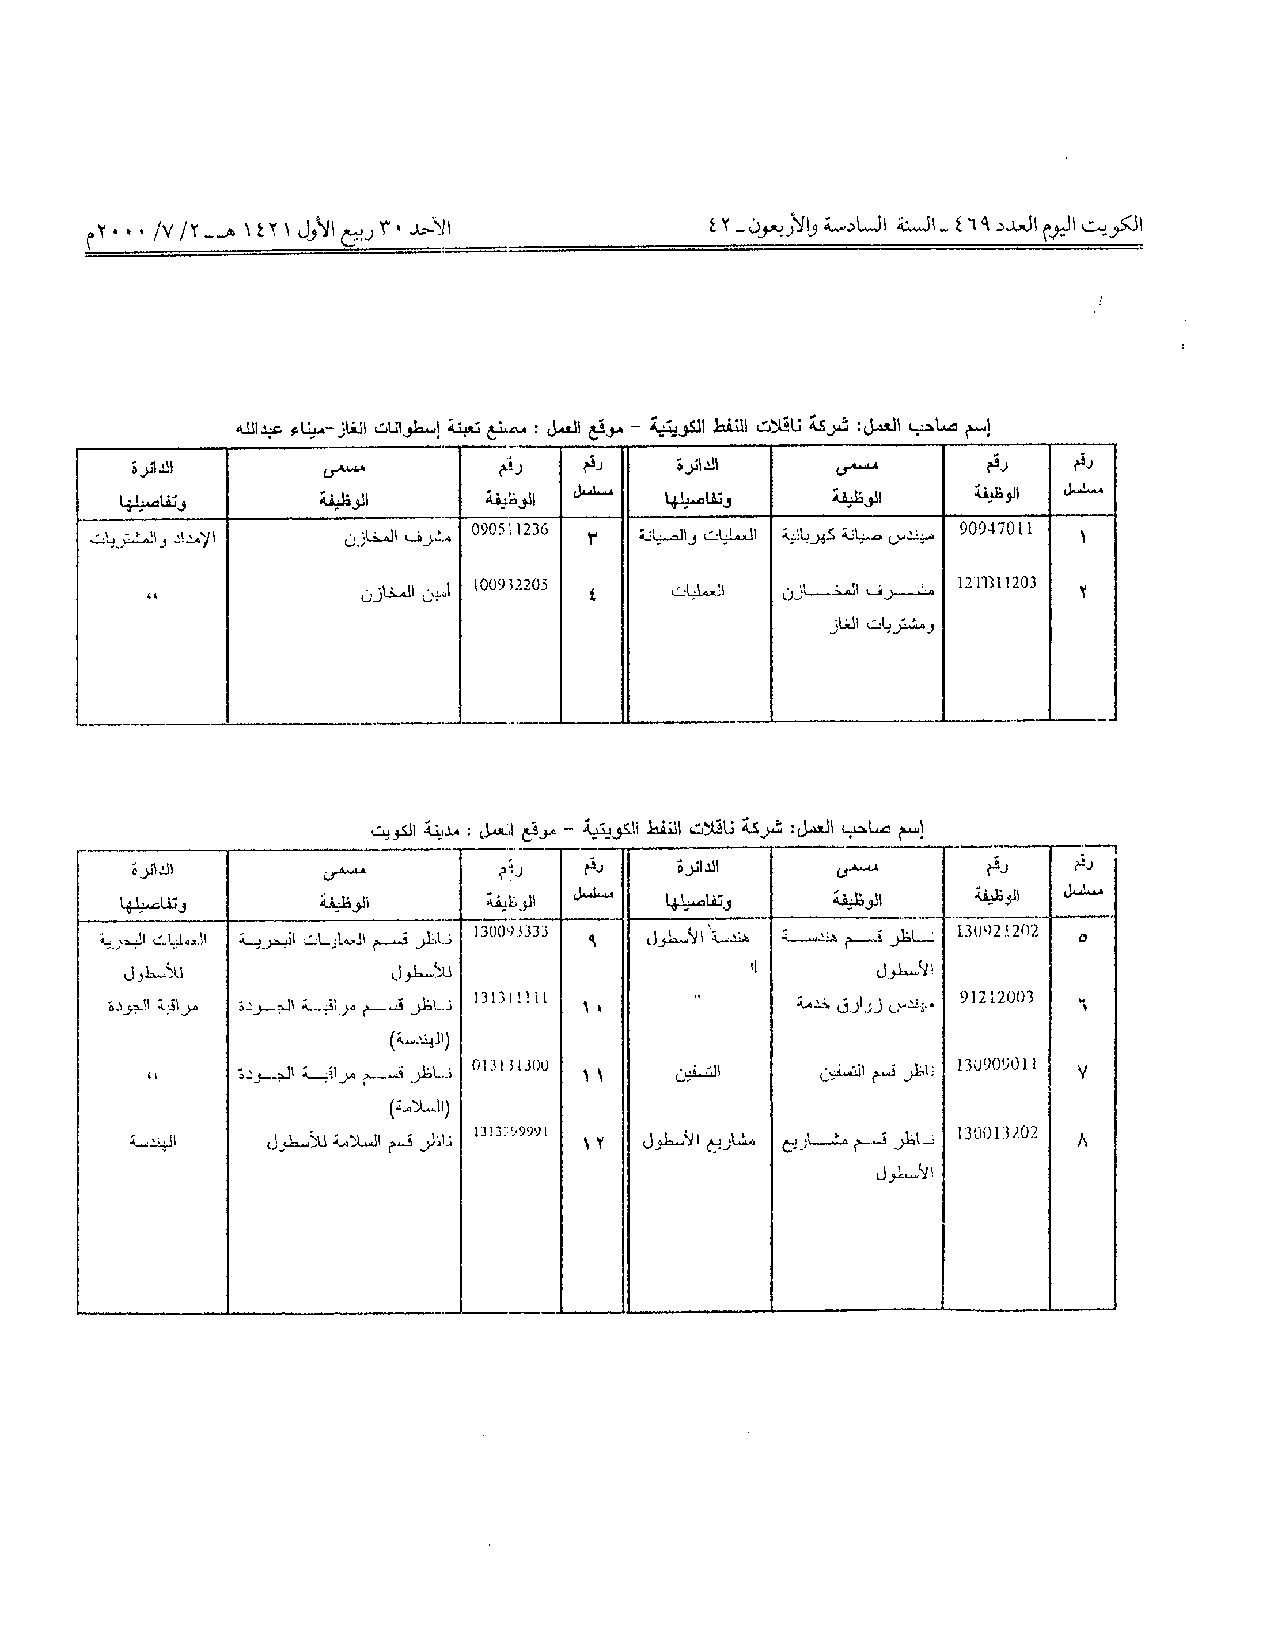 الكويت اليوم العدد ٤٦٩ - السنة السادسة والأربعون - ٤٢ الأحد ٣٠ ربيع الأول ١٤٢١ هـ - ٢ /٧ /٢٠٠٠م
إسم صاحب العمل: شركة ناقلات النفط الكويتية - موقع العمل : مصنع تعبئة إسطوانات الغاز-ميناء عبدالله
رقم مسلسل رقم الوظيفة مسمى الوظيفة الدائرة وتفاصيلها رقم مسلسل رقم الوظيفة مسمى الوظيفة الدائرة وتفاصيلها
١ 90947011 مهندس صيانة كهربائية العمليات والصيانة ٣ 090511236 مشرف المخازن الإمداد والمشتريات
٢ مشرف المخازن العمليات ٤ 100932205 أمين المخازن ،،
ومشتريات الغاز
إسم صاحب العمل: شركة ناقلات النفط الكويتية - موقع العمل : مدينة الكويت
رقم مسلسل رقم الوظيفة مسمى الوظيفة الدائرة وتفاصيلها رقم مسلسل رقم الوظيفة مسمى الوظيفة الدائرة وتفاصيلها
٥ 130923202 ناظر قسم هندسة هندسة الأسطول ٩ 130093333 ناظر قسم العمليات البحرية العمليات البحرية
الأسطول للأسطول للأسطول
٦ 91212003 مهندس زوارق خدمة " ١٠ 131311111 ناظر قسم مراقبة الجودة مراقبة الجودة
(الهندسة)
٧ 130909011 ناظر قسم التسفين التسفين ١١ 013131300 ناظر قسم مراقبة الجودة ،،
(السلامة)
٨ 130013202 ناظر قسم مشاريع مشاريع الأسطول ١٢ ناظر قسم السلامة للأسطول الهندسة
الأسطول